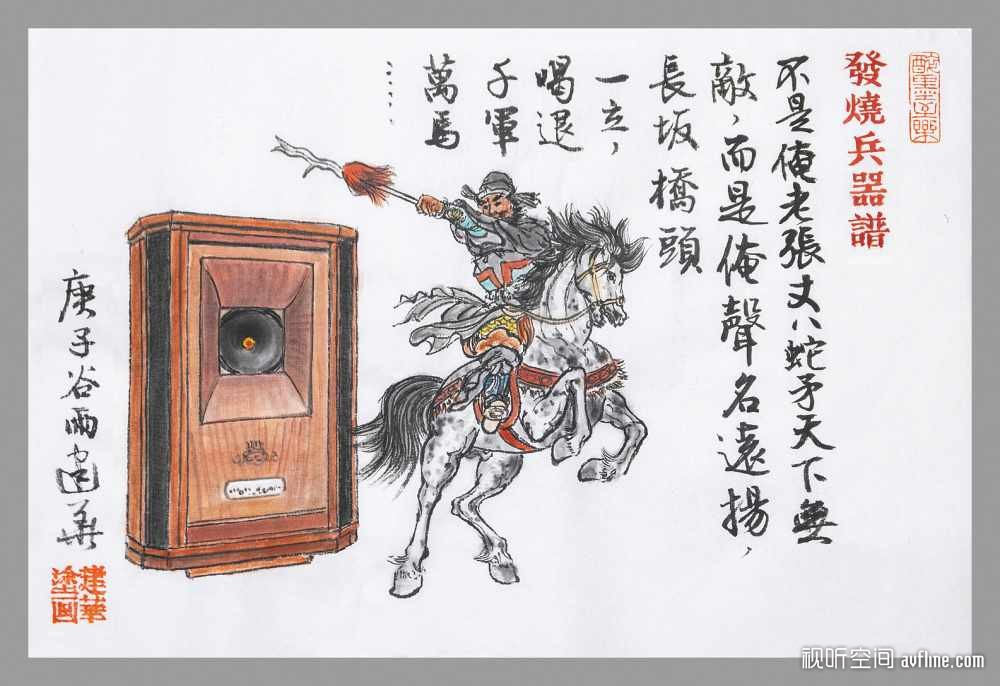 發燒兵器譜
不是俺老張丈八蛇矛天下無
敵，而是俺聲名遠揚，
長坂橋頭
一立，
喝退
千軍
萬馬
……
庚子谷雨建華
建華
塗畫
视听空间 avfline.com